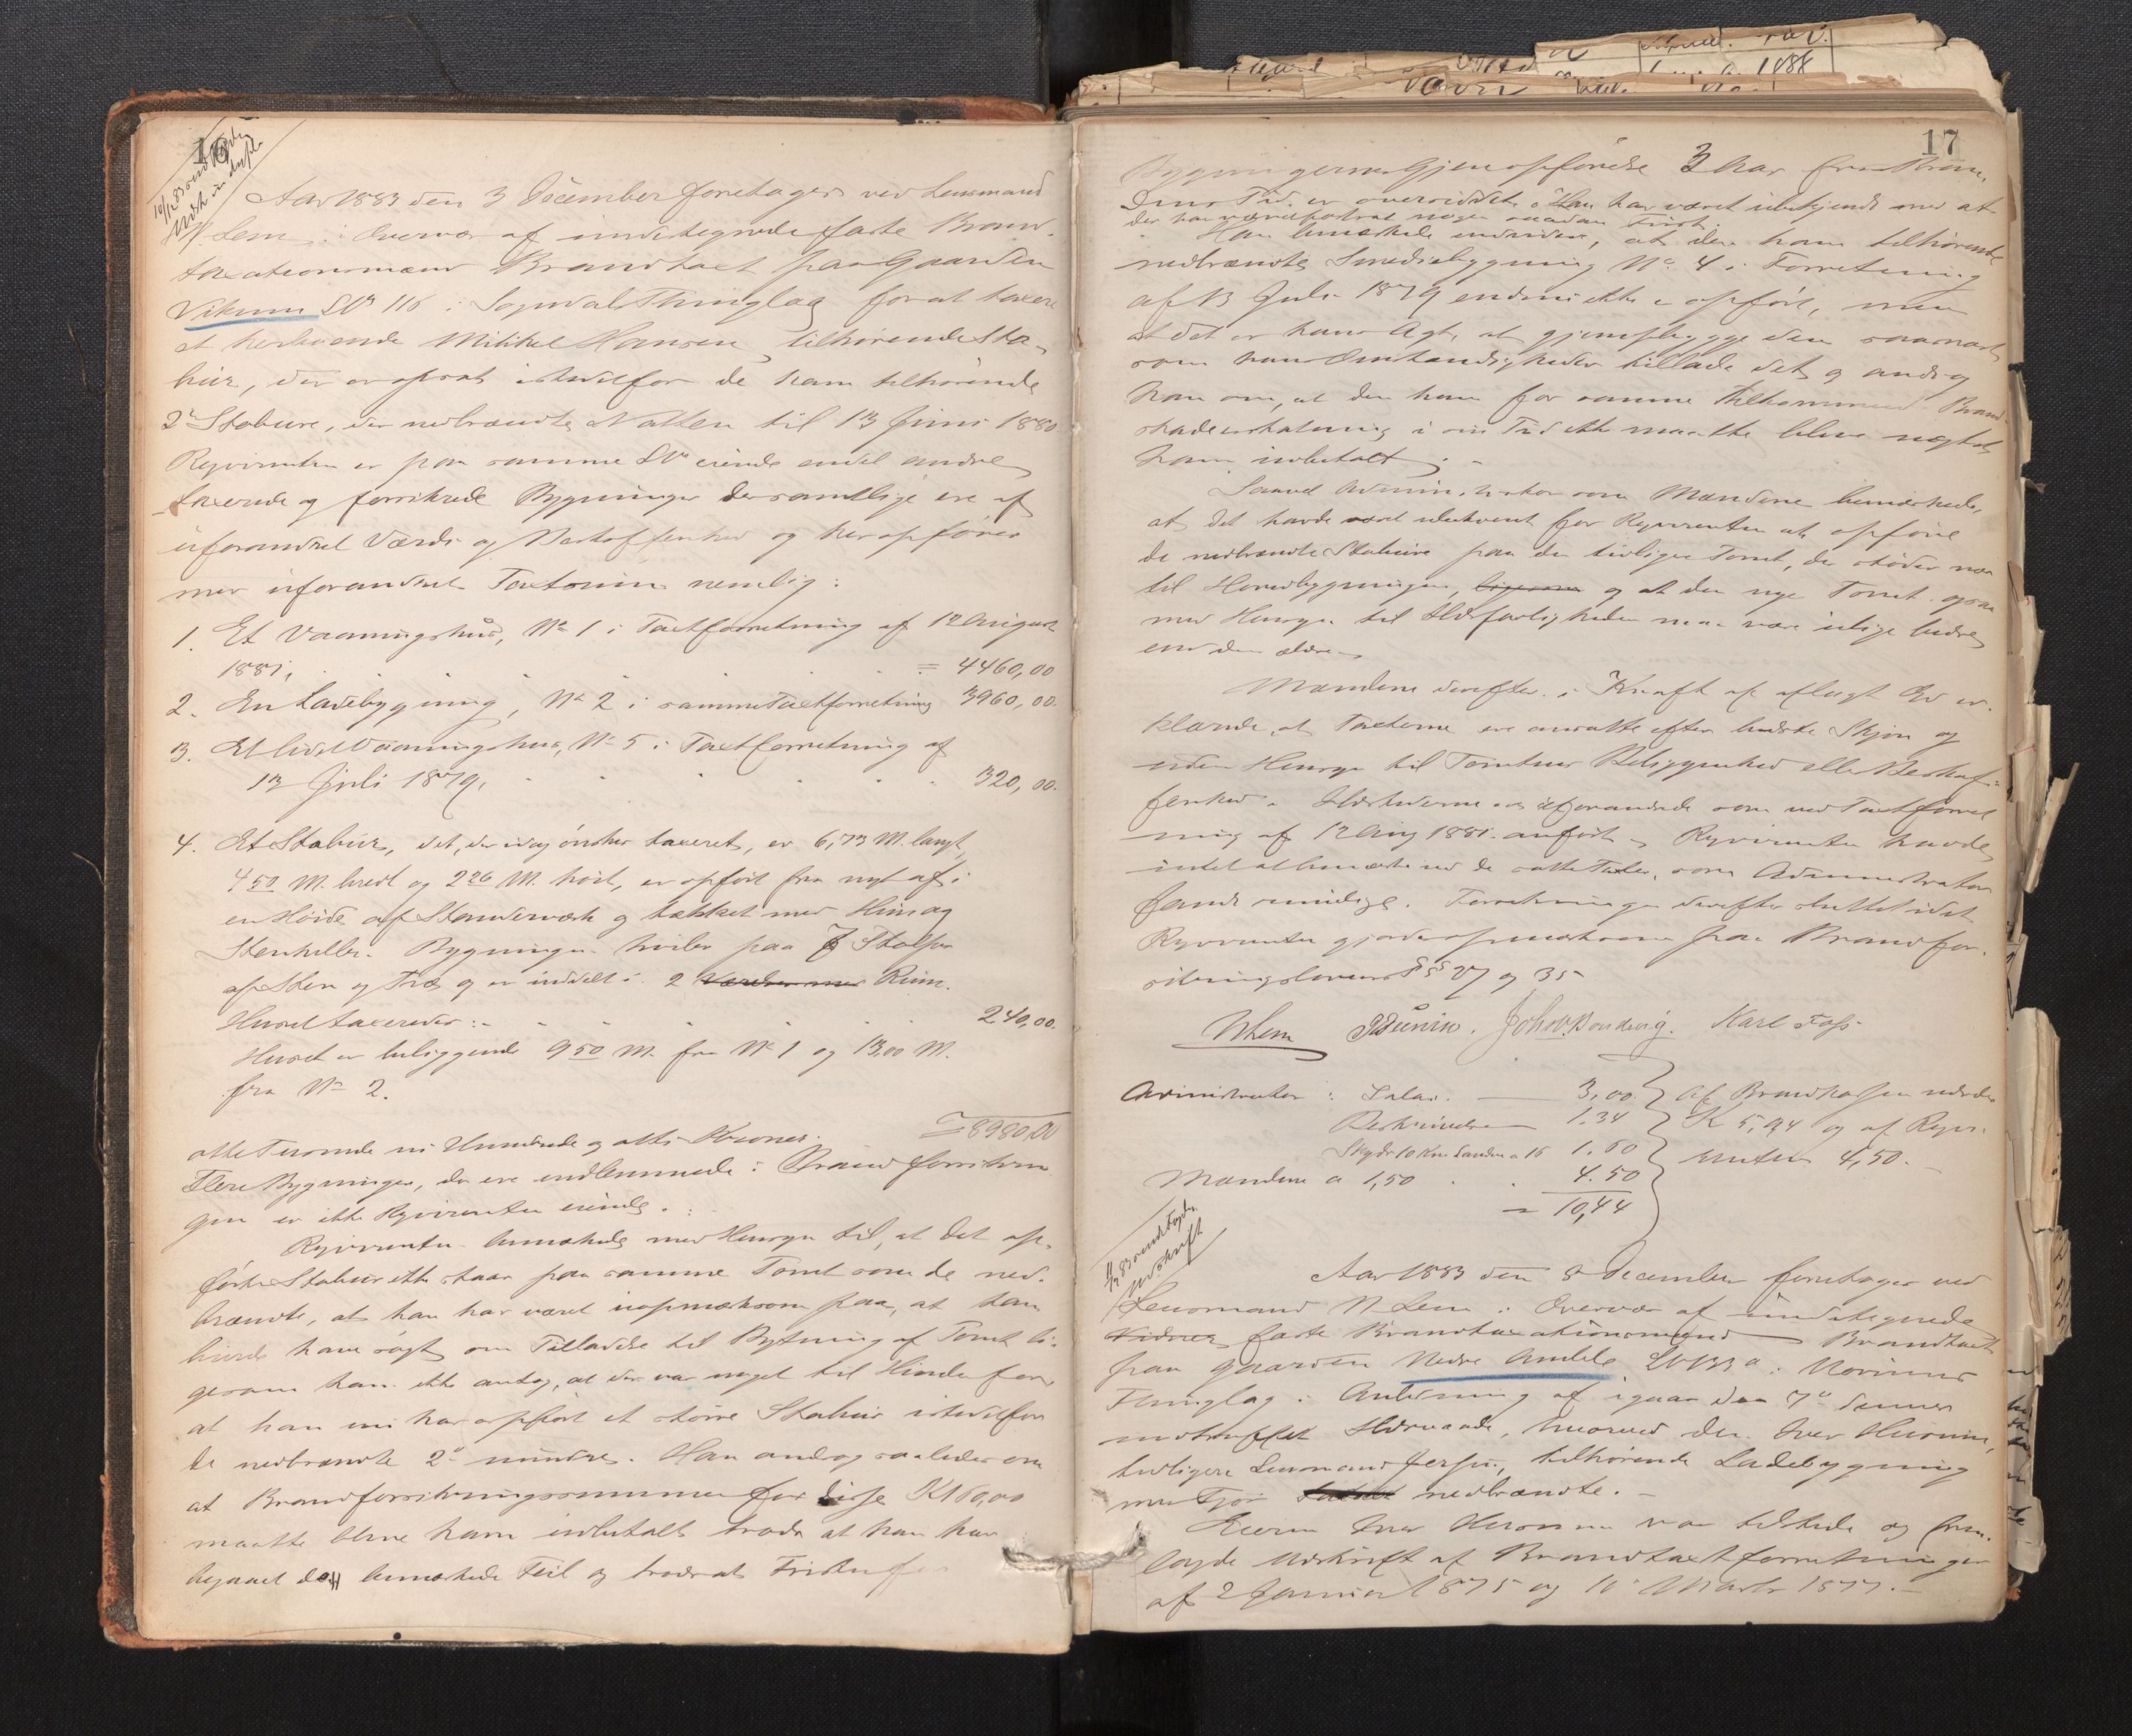 16
Aar 1883 den 3 December foretages ved Lensmand
N. Lem i Overvær af undertegnede faste Brand-
taxationsmænd Brandtaxt paa Gaarden
Vikum LN 116 i Sogndals Thinglag for at taxere
et herboende Mikkel Hansen tilhørende Sta-
bur, der er opsat istedetfor de ham tilhørende
2de Stabure, der nedbrændte Natten til 13 Juni 1880
Reqvirenten er paa samme LN eiende endel andre
taxerede og forsikrede Bygninger der samtlige ere af
uforandret Værdi og Beskaffenhed og her opføres
med uforandret Taxtsum nemlig:
1. Et Vaaningshus, No 1 i Taxtforretning af 12 August
1881. = 4460,00
2. En Ladebygning, No 2 i samme Taxtforretning 3960,00.
3. Et lidet Vaaningshus, No 5 i Taxtforretning af
13 Juli 1879. 320,00.
4. Et Stabur, det, der idag ønskes taxeret, er 6,73 M. langt,
4 50 M. bredt og 2 26 M. høit, er opført fra nyt af i
en Høide af Stenderværk og tækket med Himog
Stenheller. Bygningen hviler paa 8 Stolper
af Sten og Træ og er inddelt i 2 Rum.
Huset taxeredes: 240,00.
Huset er beliggende 9 50 M. fra No 1 og 13,00 M.
fra No 2.
= 8980,00
otte Tusende ni Hundrede og otti Kroner.
Flere Bygninger, der ere indlemmede i Brandforsikrin
gen er ikke Reqvirenten eiende.
Reqvirenten bemærkede med Hensyn til, at det op-
førte Stabur ikke staar paa samme Tomt som de ned-
brændte, at han har været uopmærksom paa, at han
burde have søgt om Tilladelse til Bytning af Tomt li-
gesom han ikke antog, at der var noget til Hinder for
at han nu har opført et større Stabur istedetfor
de nedbrændte 2de mindre. Han androg saaledes om
at Brandforsikringssummen for disse K 160,00
maatte blive ham udbetalt trods at han har
begaaet den bemærkede Feil og trods at Fristen for
17
Bygningernes Gjenopførelse 3 Aar fra Bran-
dens Tid er overskredet. Han har været ubekjendt med at
der var nogen saadan Frist.
Han bemærkede endvidere, at den ham tilhørende
nedbrændte Smediebygning No 4 i Forretning
af 13 Juli 1879 endnu ikke er opført, men
at det er hans Agt, at gjenopbygge den saasnart
som hans Omstændigheder tillade det og androg
han om, at den ham for samme tilkommende Brand-
skadeerstatning i sin Tid ikke maatte blive nægtet
ham udbetalt.
Saavel Administrator som Mændene bemærkede,
at det havde været ubekvemt for Reqvirenten at opføre
de nedbrændte Stabure paa den tidligere Tomt, der støder nær
til Hovedbygningen, ligesom og at den nye Tomt ogsaa
med Hensyn til Ildsfarligheden maa være ulige bedre
end den ældre.
Mændene derefter i Kraft af aflagt Ed er-
klærede, at Taxterne ere ansatte efter bedste Skjøn og
uden Hensyn til Tomtens Beliggenhed eller Beskaf-
fenhed. Ildstederne ere uforandrede som ved Taxtforret
ning af 12 Aug 1881 anført. Reqvirenten havde
intet at bemærke ved de satte Taxter, som Administrator
fandt rimelige. Forretningen derefter sluttet idet
Reqvirenten gjordes opmærksom paa Brandfor-
sikringslovens §§ 27 og 35
NLem Karl Foss
Administrator: Salar. 3,00 af Brandkassen udredes
Beskrivelse 1.34 K 5,94 og af Reqvi-
Skyds 10 Km. Landvei a 16 1.60 renten 4,50.
Mændene a 1,50 4.50
= 10,44
Aar 1883 den 8 December foretages ved
Lensmand N Lem i Overvær af undertegnede
Vidner faste Brandtaxationsmænd Brandtaxt
paa gaarden Nedre Amble LN 133 a i
Thinglag i Anledning af igaar den 7de dennes
indtruffet Ildsvaade, hvorved den Iver Husum,
tidligere Lensmand tilhørende Ladebygning
med Fjøs nedbrændte.
Eieren Iver Husum var tilstede og frem-
lagde Udskrift af Brandtaxtforretninger
af 2 Januar 1875 og 10 Marts 1877.